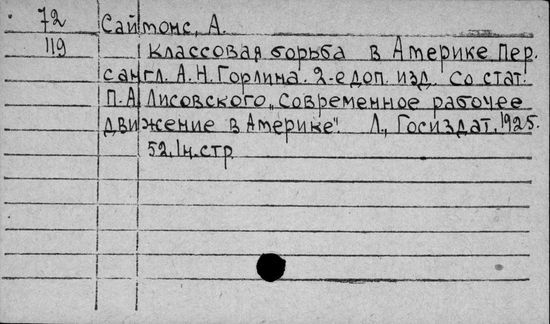 72 Саймонс, А.
119 Классовая борьба в Америке Пер.
с англ. А.Н. Горлина. 2-е доп. изд. со стат.
П.А. Лисовского „Современное рабочее
движение в Америке". Л., Госиздат, 1925.
52, 1н. стр.